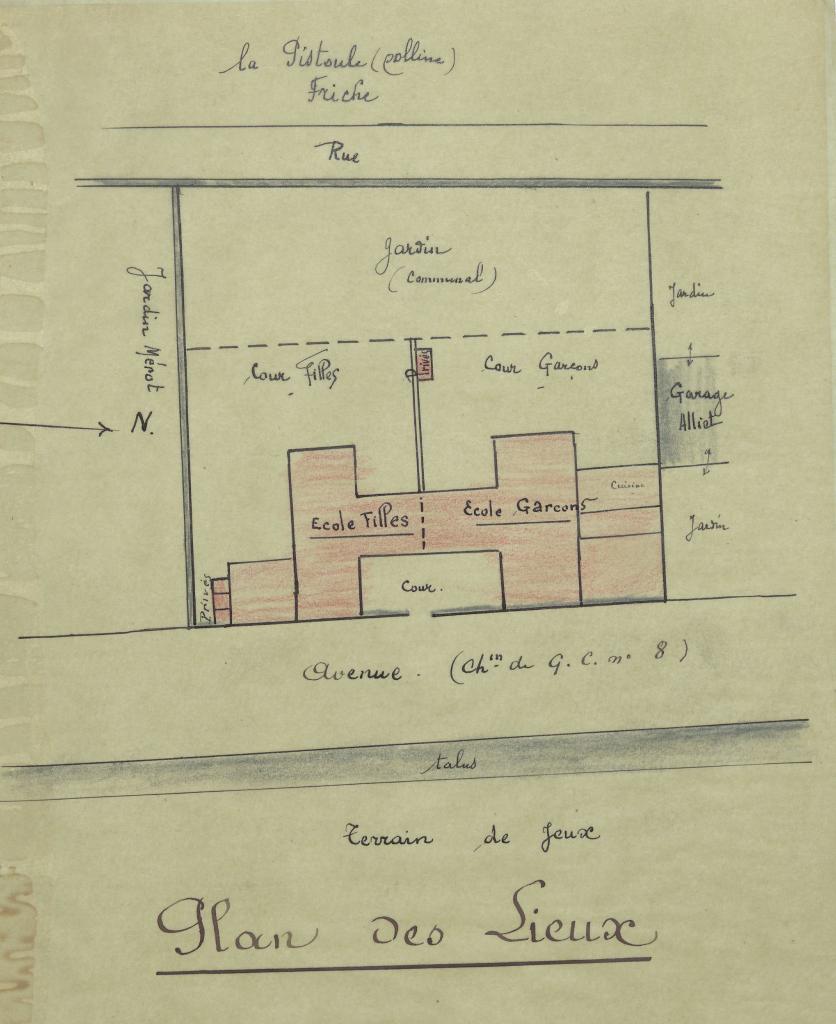 la Pistoule (colline)
Friche
Rue
Jardin
(Communal)
Jardin Mérot
Jardin
Cour Filles
Privés
Cour Garçons
Garage
Alliet
N.
Cuisine
Ecole Filles
Ecole Garcons
Jardin
Privés
Cour.
Avenue. (Chin de G. C. n° 8)
talus
Terrain de Jeux
Plan des Lieux